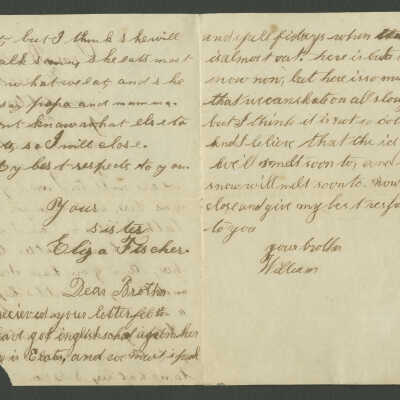 but I think she will
alk soon, she eats most
what we eat, and she
say papa and mamma.
know what else to
so I will close.
My best respects to you.
Your
sister
Eliza Fischer.
Dear Brother
recieved your letter
of english school
is Exaten, and we must speak
and I pull fidays when
is almost out. here is but
snow now, but here is so m
that we can skate on all
but I think it is not so
and I believe that the ice
will smelt soon to, and
snow will melt soon to. now
close and give my best res
to you
your brother
William